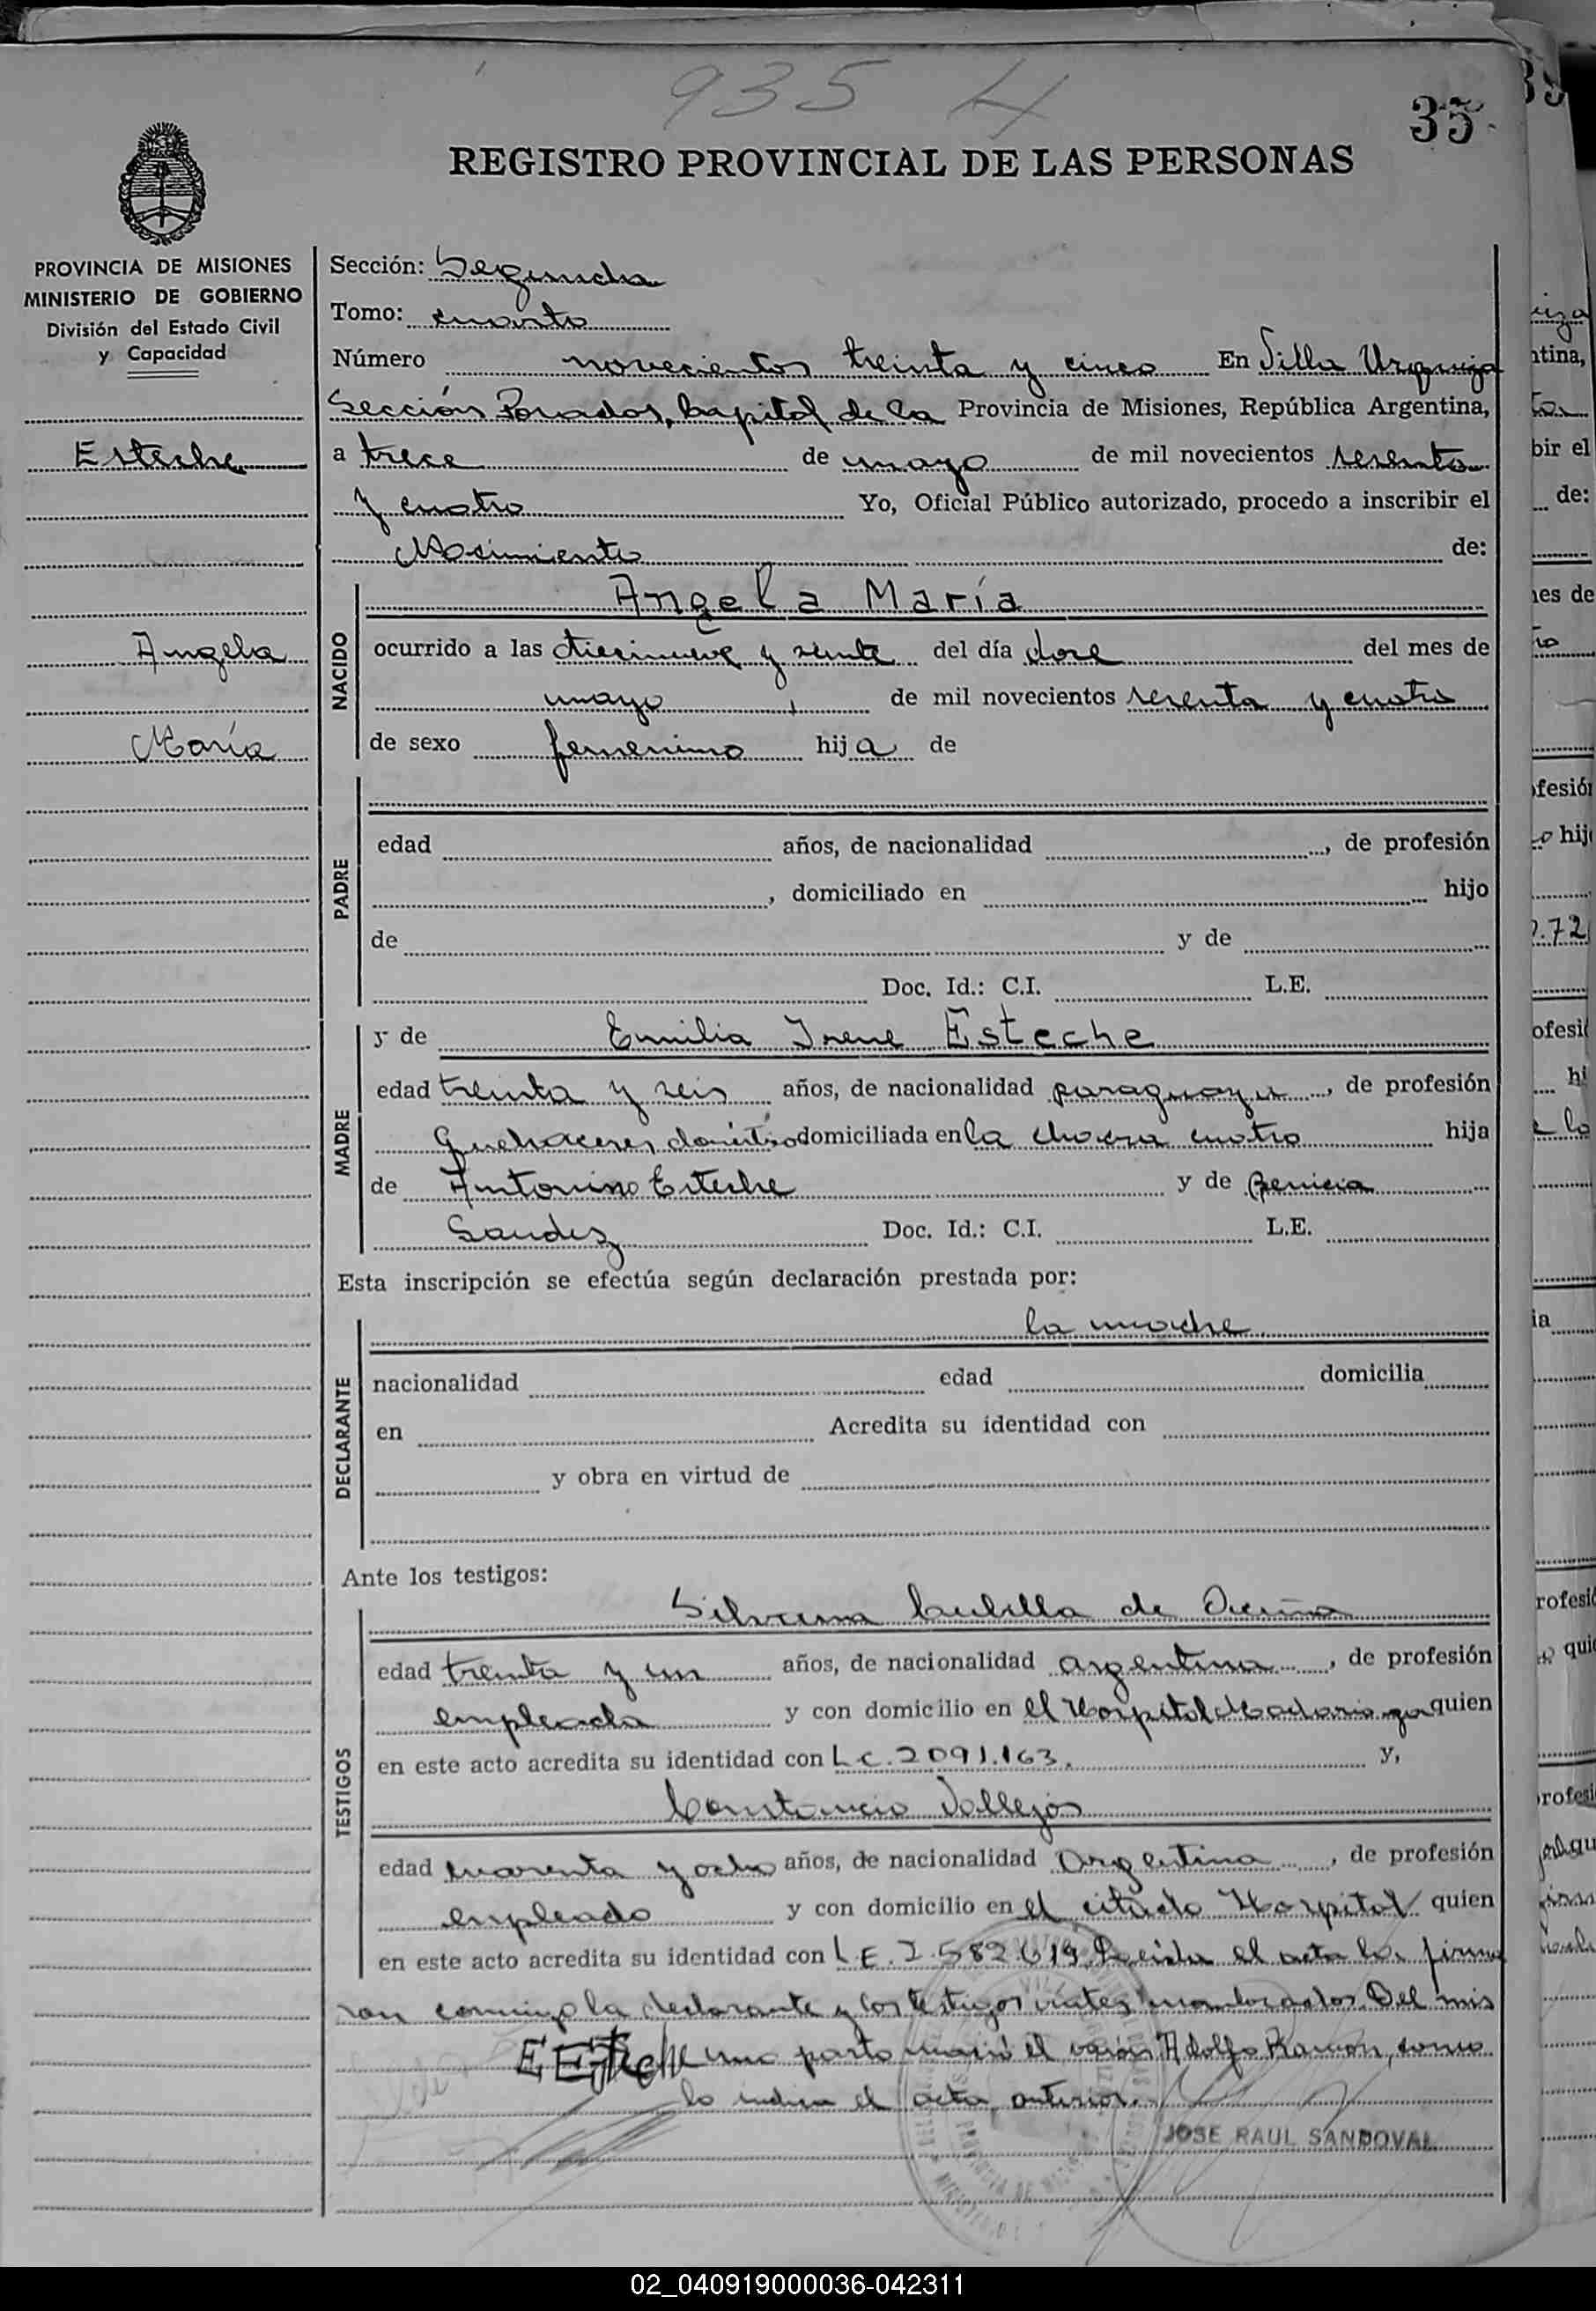 935 4
35
REGISTRO PROVINCIAL DE LAS PERSONAS
PROVINCIA DE MISIONES
MINISTERIO DE GOBIERNO
División del Estado Civil
y Capacidad
Esteche
Angela
María
Sección: Segunda
Tomo: cuarto
Número novecientos treinta y cinco En Villa Urquiza
Sección Posadas, Capital de la Provincia de Misiones, República Argentina,
a trece de mayo de mil novecientos sesenta
y cuatro Yo, Oficial Público autorizado, procedo a inscribir el
Nacimiento de:
NACIDO
Angela María
ocurrido a las diecinueve y veinte del día doce del mes de
mayo, de mil novecientos sesenta y cuatro
de sexo femenino hija de
PADRE
edad años, de nacionalidad , de profesión
, domiciliado en hijo
de y de
Doc. Id.: C.I. L.E.
MADRE
y de Emilia Irene Esteche
edad treinta y seis años, de nacionalidad paraguaya, de profesión
Quehaceres domiciliada en la chacra cuatro hija
de Antonino Esteche y de
Doc. Id.: C.I. L.E.
Esta inscripción se efectúa según declaración prestada por:
DECLARANTE
la madre
nacionalidad edad domicilia
en Acredita su identidad con
y obra en virtud de
Ante los testigos:
TESTIGOS
de
edad treinta y un años, de nacionalidad argentina, de profesión
empleada y con domicilio en el Hospital Madariaga quien
en este acto acredita su identidad con L.C. 2091.163. y,
Constancio Vallejos
edad cuarenta y ocho años, de nacionalidad Argentina, de profesión
empleado y con domicilio en el citado Hospital quien
en este acto acredita su identidad con L.E. 2.582.619. Leida el acta la firma
ron conmigo la declarante y los testigos antes mencionados. Del mis
EEsteche mo parto nació el varón Adolfo Ramon, como
lo indica el acta anterior.
JOSE RAUL SANDOVAL
02_040919000036-042311